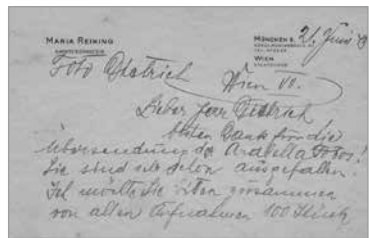 MARIA REINING
MÜNCHEN 2,
WIEN
21. Juni
Foto Dietrich
Wien VII.
Lieber Herr Dietrich
Vielen Dank für die
Übersendung der Arabella Fotos!
Sie sind sehr schön ausgefallen.
Ich möchte Sie bitten zusammen
von allen Aufnahmen 100 Stück